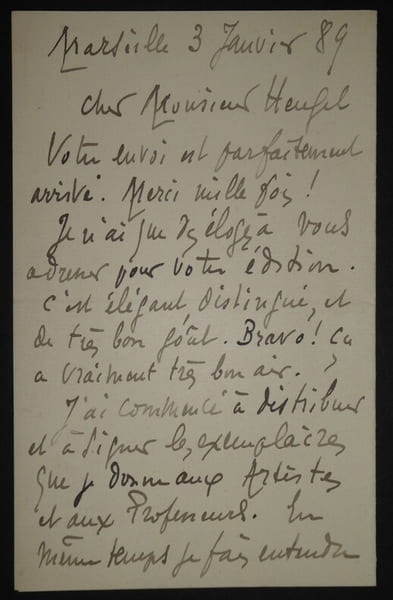 Marseille 3 Janvier 89
cher Monsieur Heugel
Votre envoi est parfaitement
arrivé. Merci mille fois !
Je n'ai que des éloges à vous
adresser pour votre édition.
C'est élégant distingué, et
de très bon goût. Bravo ! Ça
a vraiment très bon air.
J'ai commencé à distribuer
et à signer les exemplaires
que je donne aux Artistes
et aux Professeurs. En
même temps je fais entendre